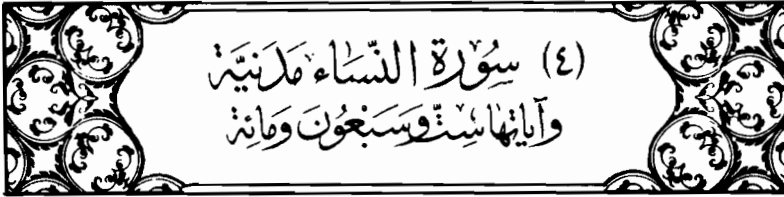 (٤) سُورَة النِّسَاء مَدَنِيَّة
وآياتها سِتٌّ وَسَبْعُونَ وَمَائِة